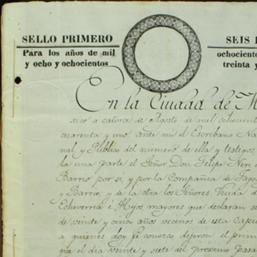 SELLO PRIMERO
SEIS
Para los años de mil
ochociento
y ocho y ochocientos
treinta y
En la Ciudad de M
xico a catorce de Agosto de mil ochocient
cuarenta y uno ante mi el Escribano Na
nal y Publico del numero de ella y testigos
la una parte el Señor Don Felipe Neri
Barrio por si, y por la Compañia de
y Barrio, y de la otra los Señores Viuda de
Echeverria é Hijos mayores que declaran se
de veinte y cinco años vecinos de esta Capi
a quienes doy fé conozco dijeron el prim
que el dia veinte y siete del procsimo pasa